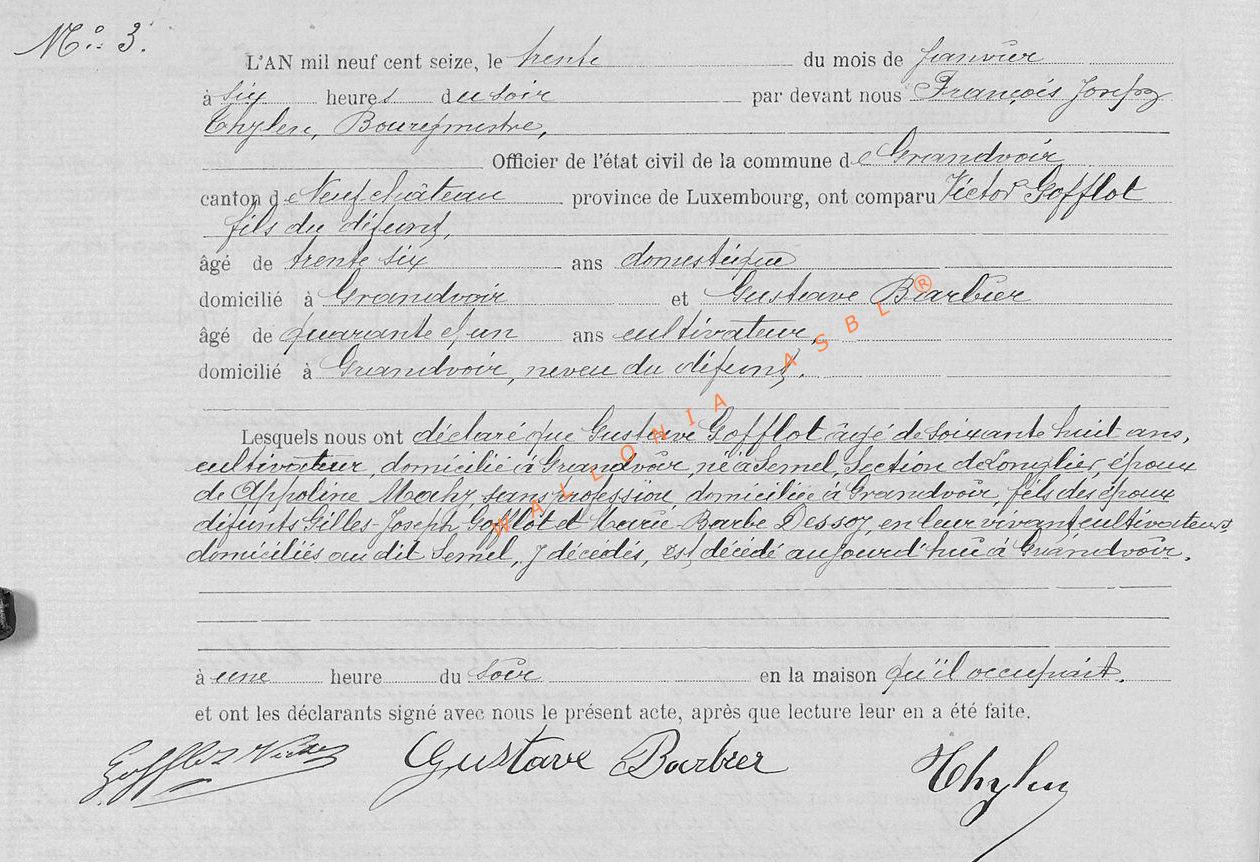 N° 3.
L'AN mil neuf cent seize, le trente du mois de Janvier
à six heures du soir par devant nous François Joseph
Thylen, Bourgmestre,
Officier de l'état civil de la commune de Grandvoir
canton de Neufchâteau province de Luxembourg, ont comparu Victor Gofflot
fils du défunt,
âgé de trente six ans domestique
domicilié à Grandvoir et Gustave Barbier
âgé de quarante et un ans cultivateur,
domicilié à Grandvoir, neveu du défunt.
Lesquels nous ont déclaré que Gustave Gofflot âgé de soixante huit ans,
cultivateur, domicilié à Grandvoir, né à Semel, Section de Longlier, époux
de Appoline Mahy, sans profession domiciliée à Grandvoir, fils des époux
défunts Gilles-Joseph Gofflot et Marie-Barbe Dessoy, en leur vivant cultivateurs,
domiciliés au dit Semel, y décédés, est décédé aujourd'hui à Grandvoir.
à une heure du soir en la maison qu'il occupait.
et ont les déclarants signé avec nous le présent acte, après que lecture leur en a été faite.
Gofflot Victor Gustave Barbier Thylen
WALLONIA ASBL ®